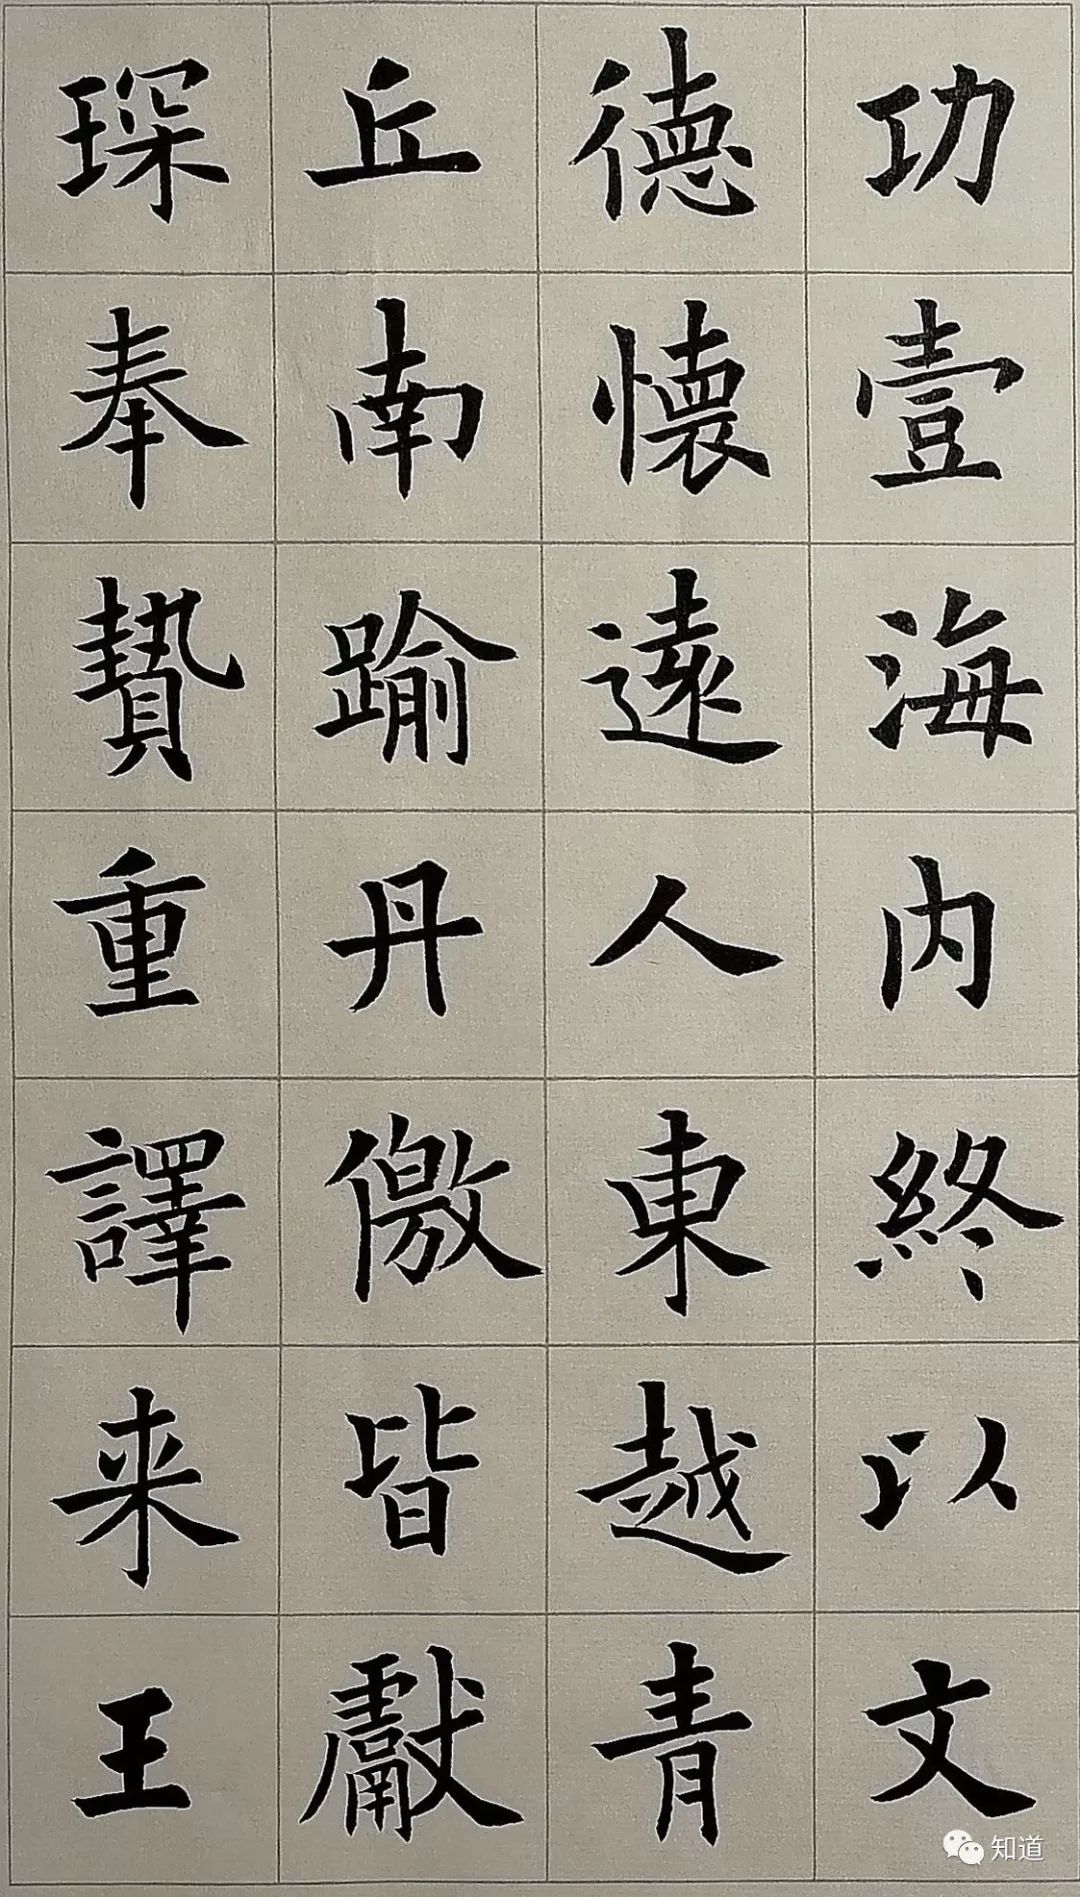 功壹海內終以文
德懷遠人東越青
丘南踰丹儌皆獻
琛奉贄重譯来王
知道